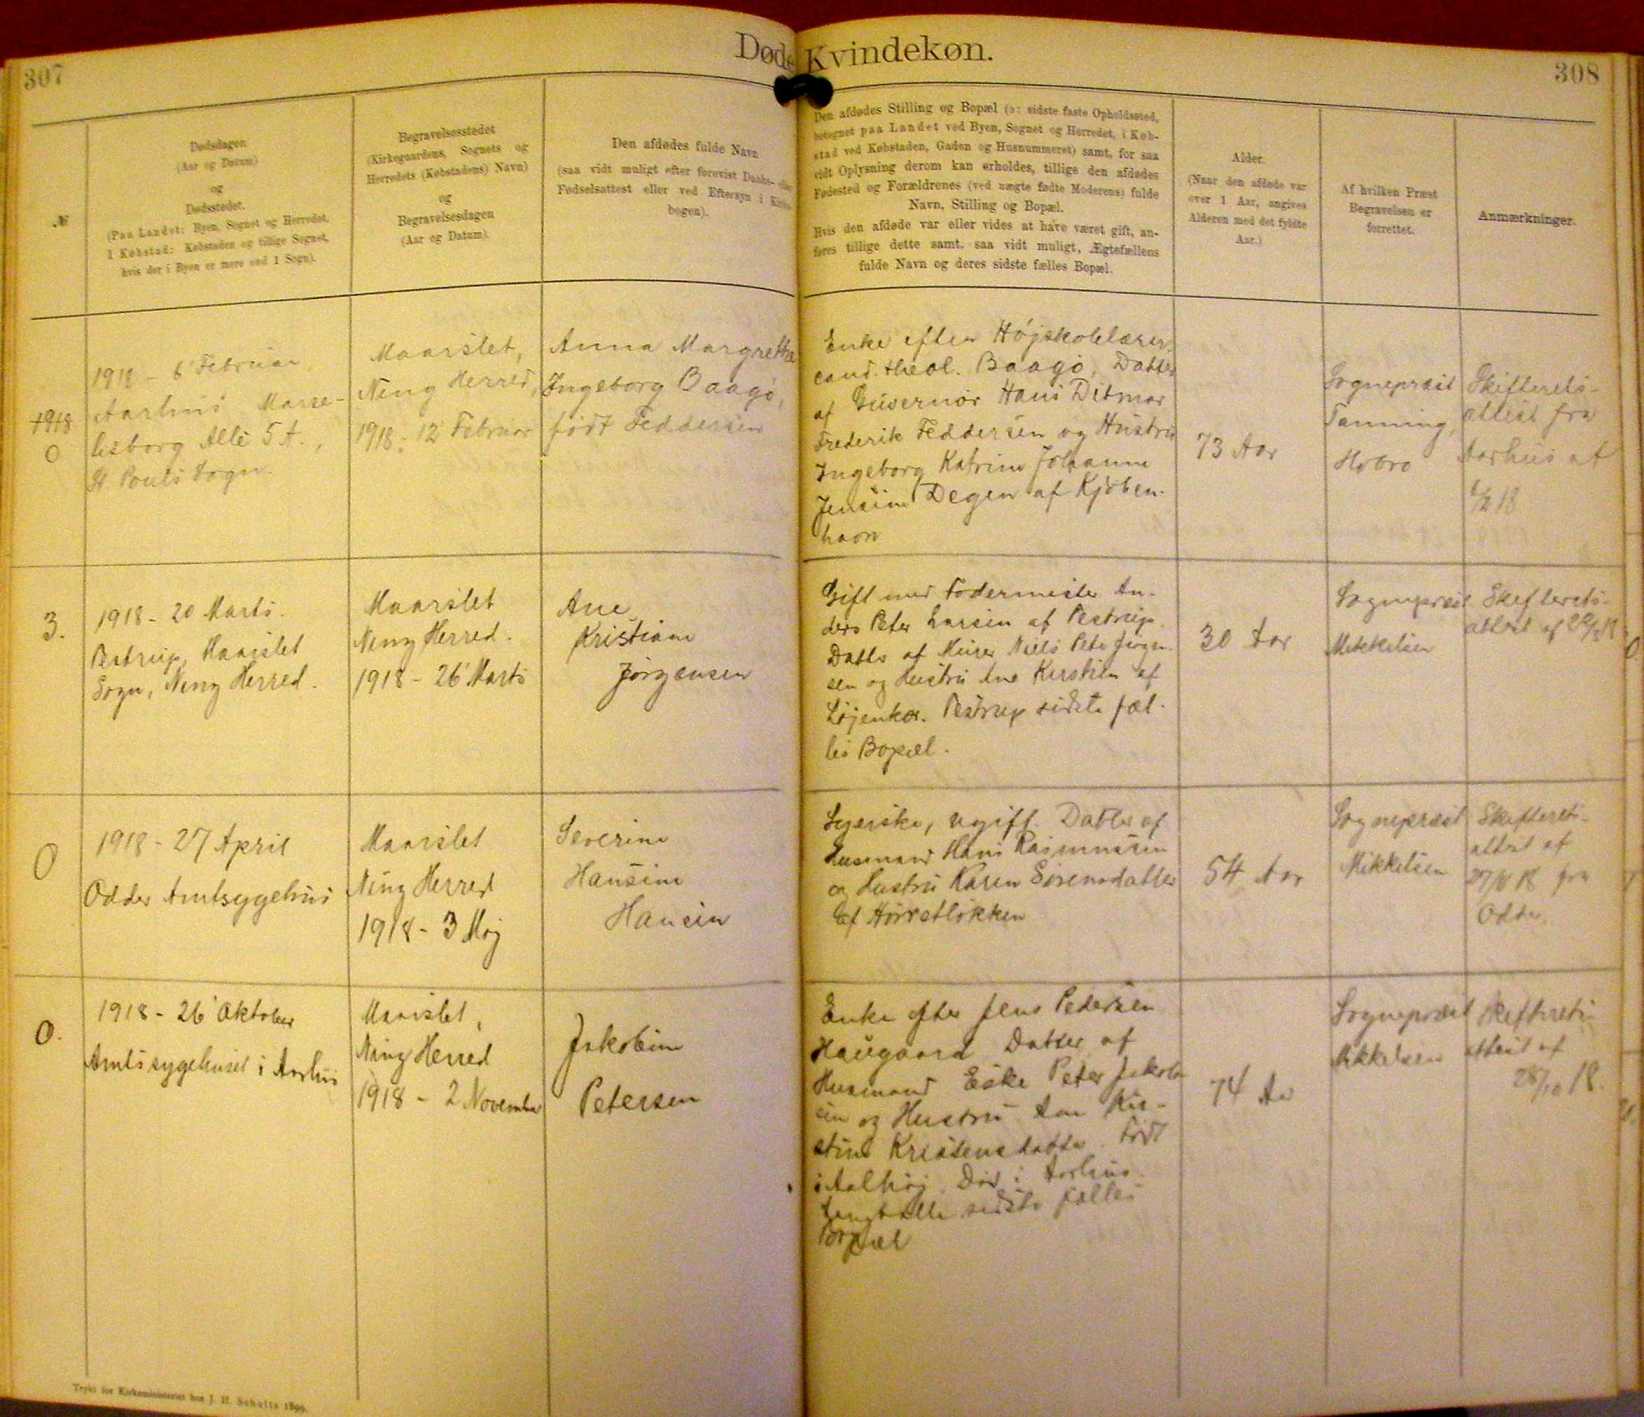 307
Døde
Kvindekøn.
308
№
Dødsdagen
(Aar og Datum)
og
Dødsstedet.
(Paa Landet: Byen, Sognet og Herredet,
i Købstad: Købstaden og tillige Sognet,
hvis der i Byen er mere end 1 Sogn).
Begravelsesstedet
(Kirkegaardens, Sognets og
Herredets (Købstadens) Navn)
og
Begravelsesdagen
(Aar og Datum).
Den afdødes fulde Navn
(saa vidt muligt efter forevist Daabs- eller
Fødselsattest eller ved Eftersyn i Kirke-
bogen).
Den afdødes Stilling og Bopæl (ɔ: sidste faste Opholdssted,
betegnet paa Landet ved Byen, Sognet og Herredet, i Køb-
stad ved Købstaden, Gaden og Husnummeret) samt, for saa
vidt Oplysning derom kan erholdes, tillige den afdødes
Fødested og Forældrenes (ved uægte fødte Moderens) fulde
Navn, Stilling og Bopæl.
Hvis den afdøde var eller vides at have været gift, an-
føres tillige dette samt, saa vidt muligt, Ægtefællens
fulde Navn og deres sidste fælles Bopæl.
Alder.
(Naar den afdøde var
over 1 Aar, angives
Alderen med det fyldte
Aar.)
Af hvilken Præst
Begravelsen er
forrettet.
Anmærkninger.
1918
0
1918 - 6' Februar
Aarhus Marse-
lisborg Allé 5 A.,
St Pouls Sogn.
Maarslet,
Ning Herred,
1918. 12' Februar
Anna Margrethe
Ingeborg Baagø,
født Feddersen
Enke efter Højskolelærer,
cand. theol. Baagø, Datter
af Guvernør Hans Ditmar
Frederik Feddersen og Hustru
Ingeborg Katrine Johanne
Jensine Degen af Kjøben-
havn
73 Aar
Sognepræst
Tanning,
Hobro
Skifterets-
attest fra
Aarhus af
18
3.
1918 - 20 Marts.
Pestrup, Maarslet
Sogn, Ning Herred.
Maarslet
Ning Herred.
1918 - 26' Marts
Ane
Kristiane
Jørgensen
Gift med Fodermester An-
ders Peter Larsen af Pestrup.
Datter af Murer Niels Peter Jørgen-
sen og Hustru Ane Kirstine af
Løjenkær. Pestrup sidste fæl-
les Bopæl.
30 Aar
Sognepræst
Mikkelsen
Skifterets-
attest af 22/3 18
0
1918 - 27 April
Odder Amtsygehus
Maarslet
Ning Herred
1918 - 3 Maj
Severine
Hansine
Hansen
Syerske, ugift. Datter af
Husmand Hans Rasmussen
og Hustru Karen Sørensdatter
af Hørretløkken
54 Aar
Sognepræst
Mikkelsen
Skifterets-
attest af
18 fra
Odder.
0.
1918 - 26' Oktober
Amtssygehuset i Aarhus
Maarslet,
Ning Herred
1918 - 2 November
Jakobine
Petersen
Enke efter Jens Pedersen
Haugaard. Datter af
Husmand Eske Peter Jakob-
sen og Hustru Ane Kir-
stine Kristensdatter. Født
i Aalhøj. Død i Aarhus.
sidste fælles
Bopæl
74 Aar
Sognepræst
Mikkelsen
Skifterets-
attest af
28/10 18.
Trykt for Kirkeministeriet hos J. H. Schultz 1899.